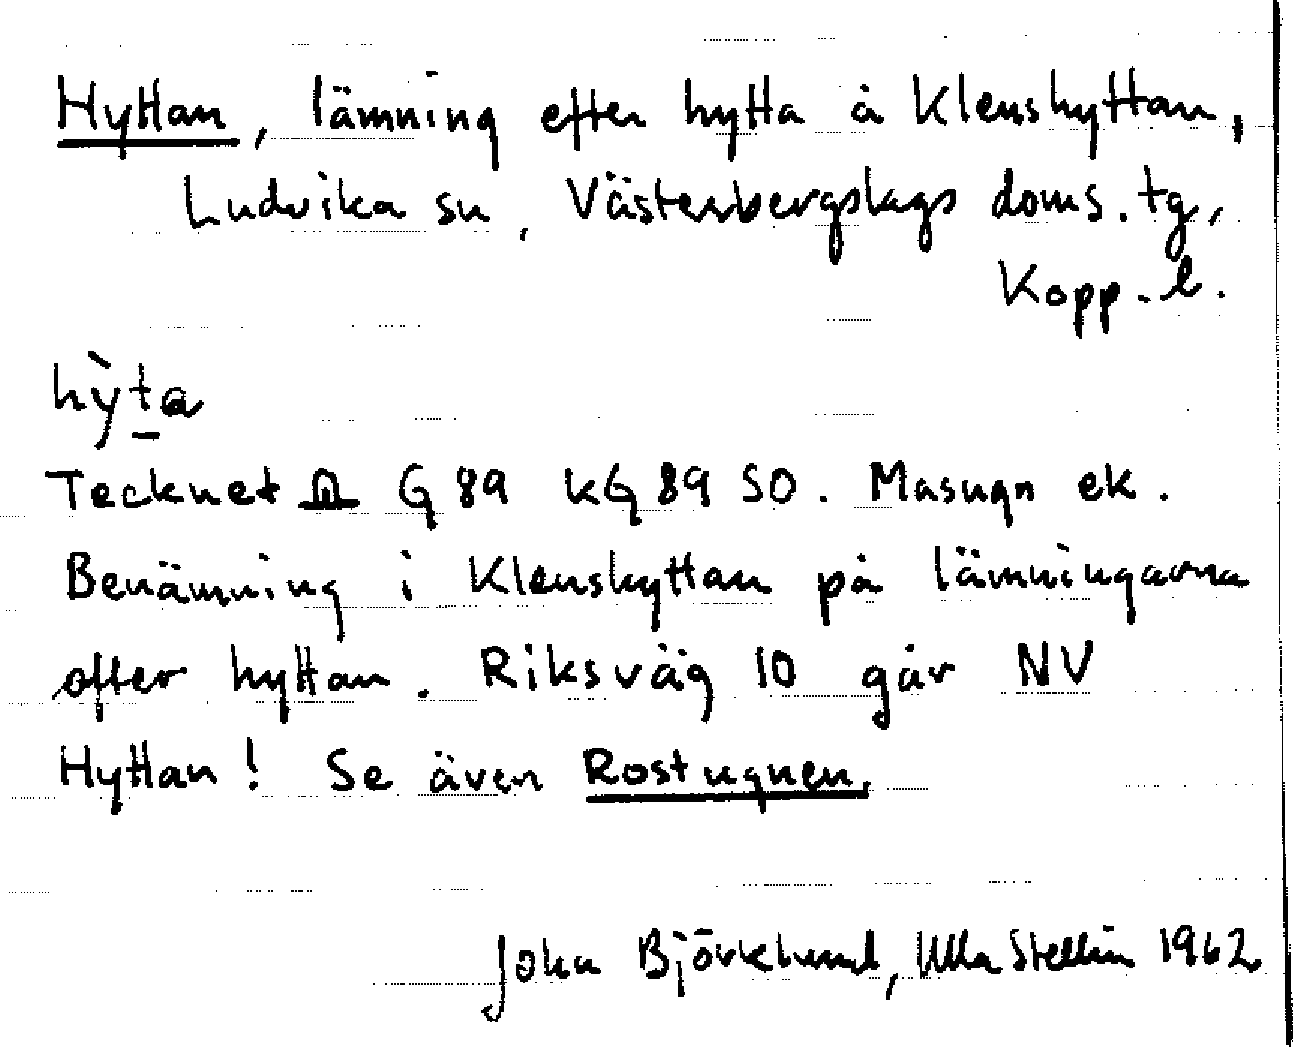 Hyttan, lämning efter hytta å Klenshyttan,
Ludvika sn, Västerbergslags doms. tg,
Kopp. l.
hy̏ta
Tecknet G 89 kG 89 SO. Masugn ek.
Benämning i Klenshyttan på lämningarna
efter hyttan. Riksväg 10 går NV
Hyttan! Se även Rostugnen.
John Björklund, Ulla Stellin 1962